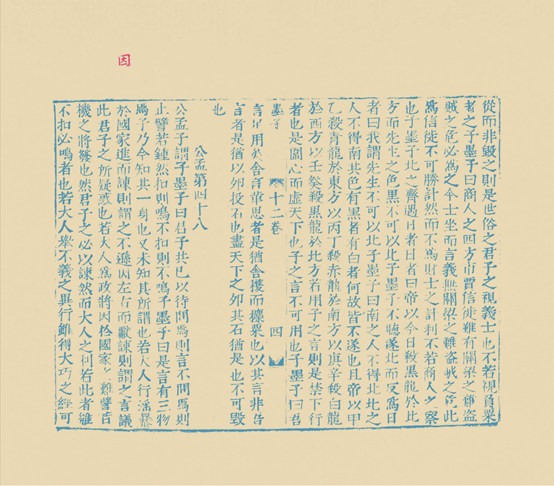 因
從而非毀之則是世俗之君子之視義士也不若視負粟
者也子墨子曰商人之四方市賈信徙雖有關梁之難盜
賊之危必為之今士坐而言義無關梁之難盜賊之危此
為信徙不可勝計然而不為則士之計利不若商人之察
也子墨子北之齊遇日者日者曰帝以今日殺黑龍於北
方而先生之色黑不可以北子墨子不聽遂北而反焉日
者曰我謂先生不可以北子墨子曰南之人不得北北之
人不得南其色有黑者有白者何故皆不遂也且帝以甲
乙殺青龍於東方以丙丁殺赤龍於南方以庚辛殺白龍
於西方以壬癸殺黑龍於北方若用子之言則是禁下行
者也是圍心而虛天下也子之言不可用也子墨子曰吾
墨子 十二卷 四
言足用矣舍言革思者是猶舍穫而攈粟也以其言非吾
言者是猶以卵投石也盡天下之卵其石猶是也不可毀
也
公孟第四十八
公孟子謂子墨子曰君子共己以待問焉則言不問焉則
止譬若鍾然扣則鳴不扣則不鳴子墨子曰是言有三物
焉子乃今知其一身也又未知其所謂也若大人行淫暴
於國家進而諫則謂之不遜因左右而獻諫則謂之言議
此君子之所疑惑也若大人為政將因於國家之難譬若
機之將發也然君子之必以諫然而大人之利若此者雖
不扣必鳴者也若大人舉不義之異行雖得大巧之經可